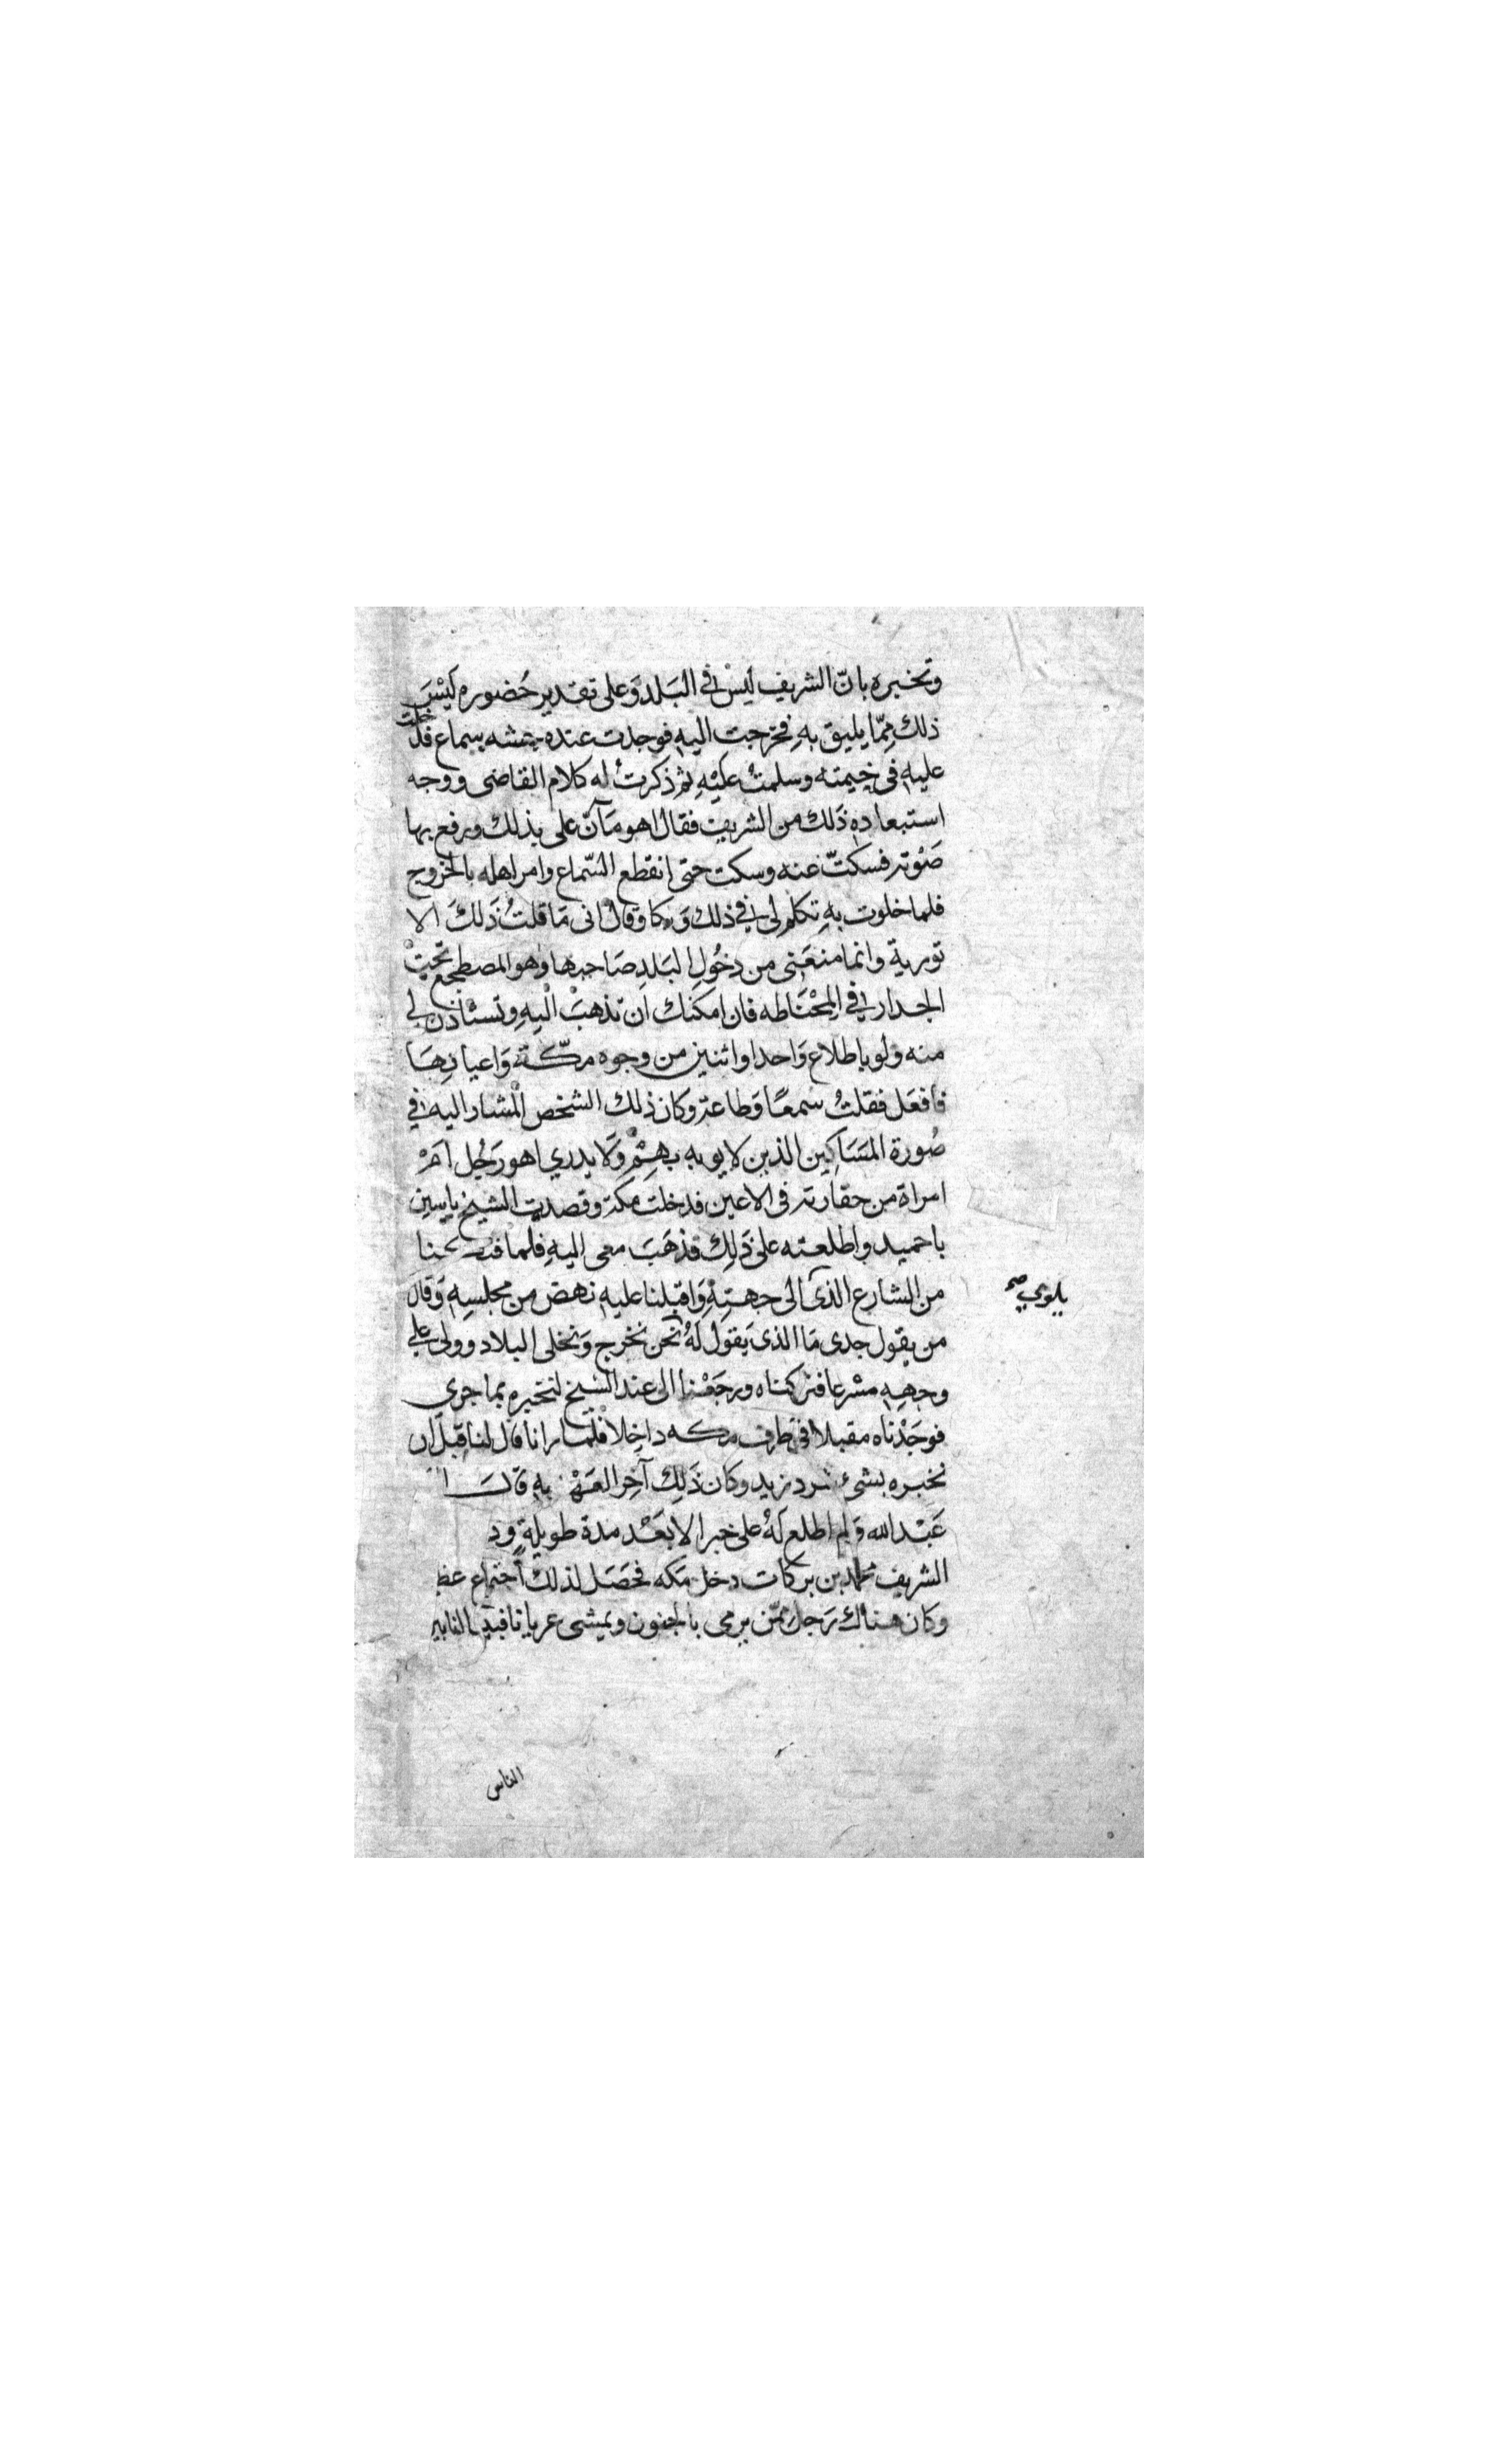 وتخبره بانّ الشريف ليْس في البَلد وَعلى تقدير حُضوره ليْسَ
ذلك مِمّا يليق بهِ فخرجت اليهِ فوجدت عنده بسماع فدخلت
عليهِ في خيمته وسلمتُ عليْهِ ثم ذكرتُ له كلام القاضى ووجه
استبعاده ذَلك من الشريف فقال اهو على بذلك ورفع بها
صَوْته فسكتّ عنه وسكت حتى انقطع السّماع وامر اهله بالخروج
فلما خلوت بهِ تكلم لى في ذلك وقال انى مَا قلتُ ذَلكَ الا
تورية وانما منعَنى من دخُولِ البَلدِ صَاحبها وهو المصطجع تحتْ
الجدار في فان امكنك ان تذهبْ اليهِ وتستاذن لي
منه ولو باطلاع وَاحد او اثنين من وجوه مكّة وَاعيانهَا
فافعَل فقلتُ سَمعًا وَطاعة وكان ذلك الشخص المشار اليه في
صُورة المسَاكِين الذين لا يوبه بهِمْ وَلا يدري اهو رَجُل امْ
امراة من حقارته في الاعين فدخلت مكة وقصدت الشيخ ياسين
باحميد واطلعته على ذَلِك فذهَبَ معى اليهِ فلما
من الشارع الذى الى جهتِهِ وَاقبلنا عليهِ نهض من مجلسِهِ وَقال
يلوي صح
من يقول جدى مَا الذى يَقوَل لهُ نحن نخرج وَنخلى البلاد وولى على
وجههِ مسْرعا فتركناه ورجَعْنا الى عند الشيخ لنخبره بما جرى
فوجَدْناه مقبلا في طرف مكه داخِلا فلمّا رانا قال لنا قبل ان
نخبره بشئ وكان ذَلِك آخِر العَهْد بهِ قَالَ
عَبْد الله وَلم اطلع لهُ على خبر الا بَعْد مدة طويلةٍ
الشريف محمد بن بركات دخل مَكه فحَصَل لذلك اجتماع
وكان هناك رَجل ممّن يرمى بالجنون ويمشى عريانا
الناس